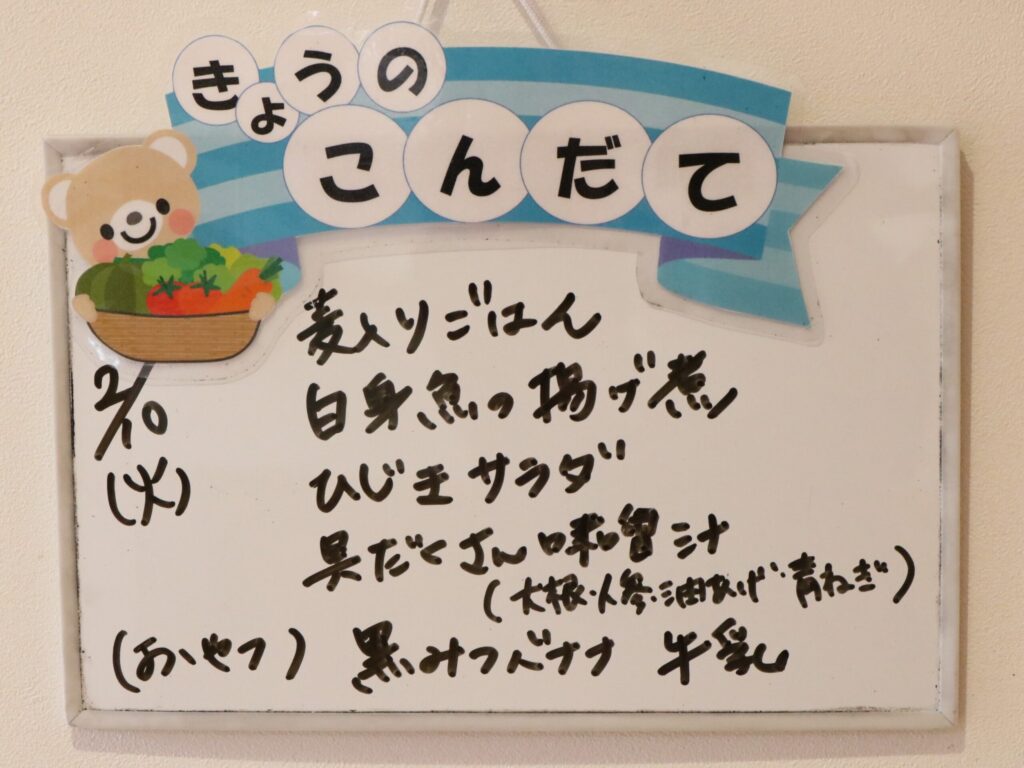 きょうの
こんだて
麦入りごはん
2/10
白身魚の揚げ煮
(火)
ひじきサラダ
具だくさん味噌汁
(大根・人参・油あげ・青ねぎ)
(おやつ) 黒みつバナナ 牛乳